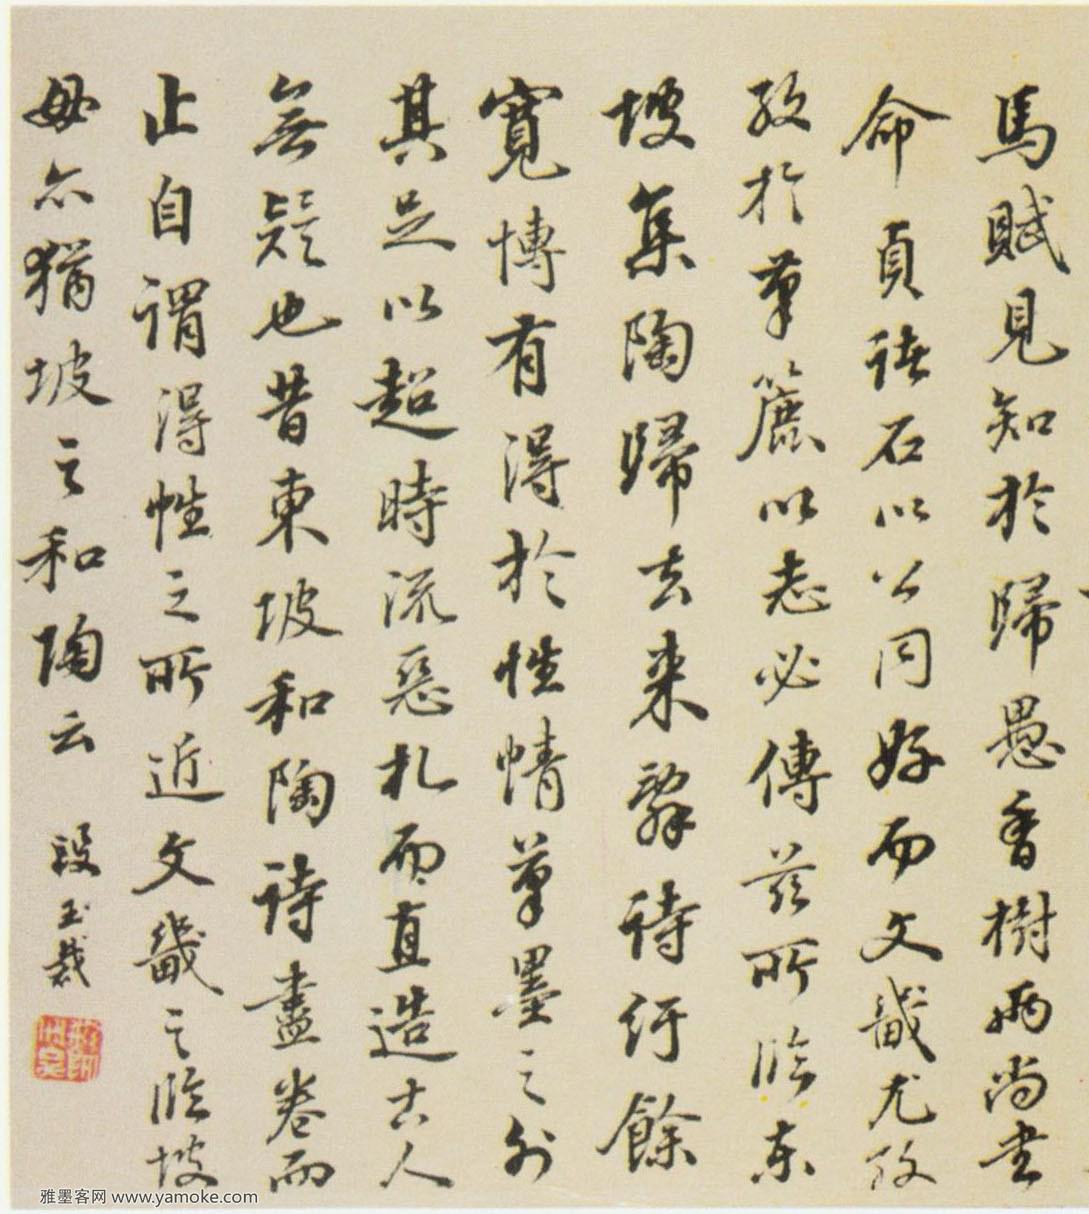 馬賦見知於歸愚香樹兩尚書
命貞珉石以公同好而文畿尤孜
孜於筆簏以志必傳茲所臨東
坡集陶歸去來辭詩紆餘
寬博有得於性情筆墨之外
其足以超時流惡札而直造古人
無疑也昔東坡和陶詩盡卷而
止自謂得性之所近文畿之臨坡
毋亦猶坡之和陶云
段玉裁
雅墨客网 www.yamoke.com